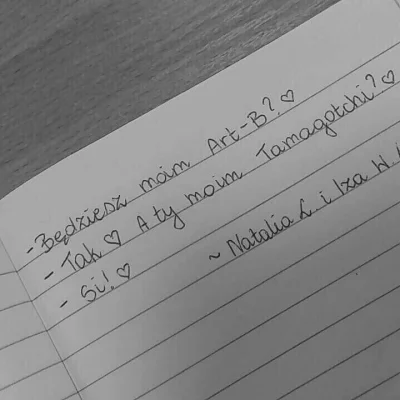 - Będziesz moim Art-B? ♡
- Tak ♡ A ty moim Tamagotchi? ♡
- Si! ♡
~ Natalia Ł i Iza W.